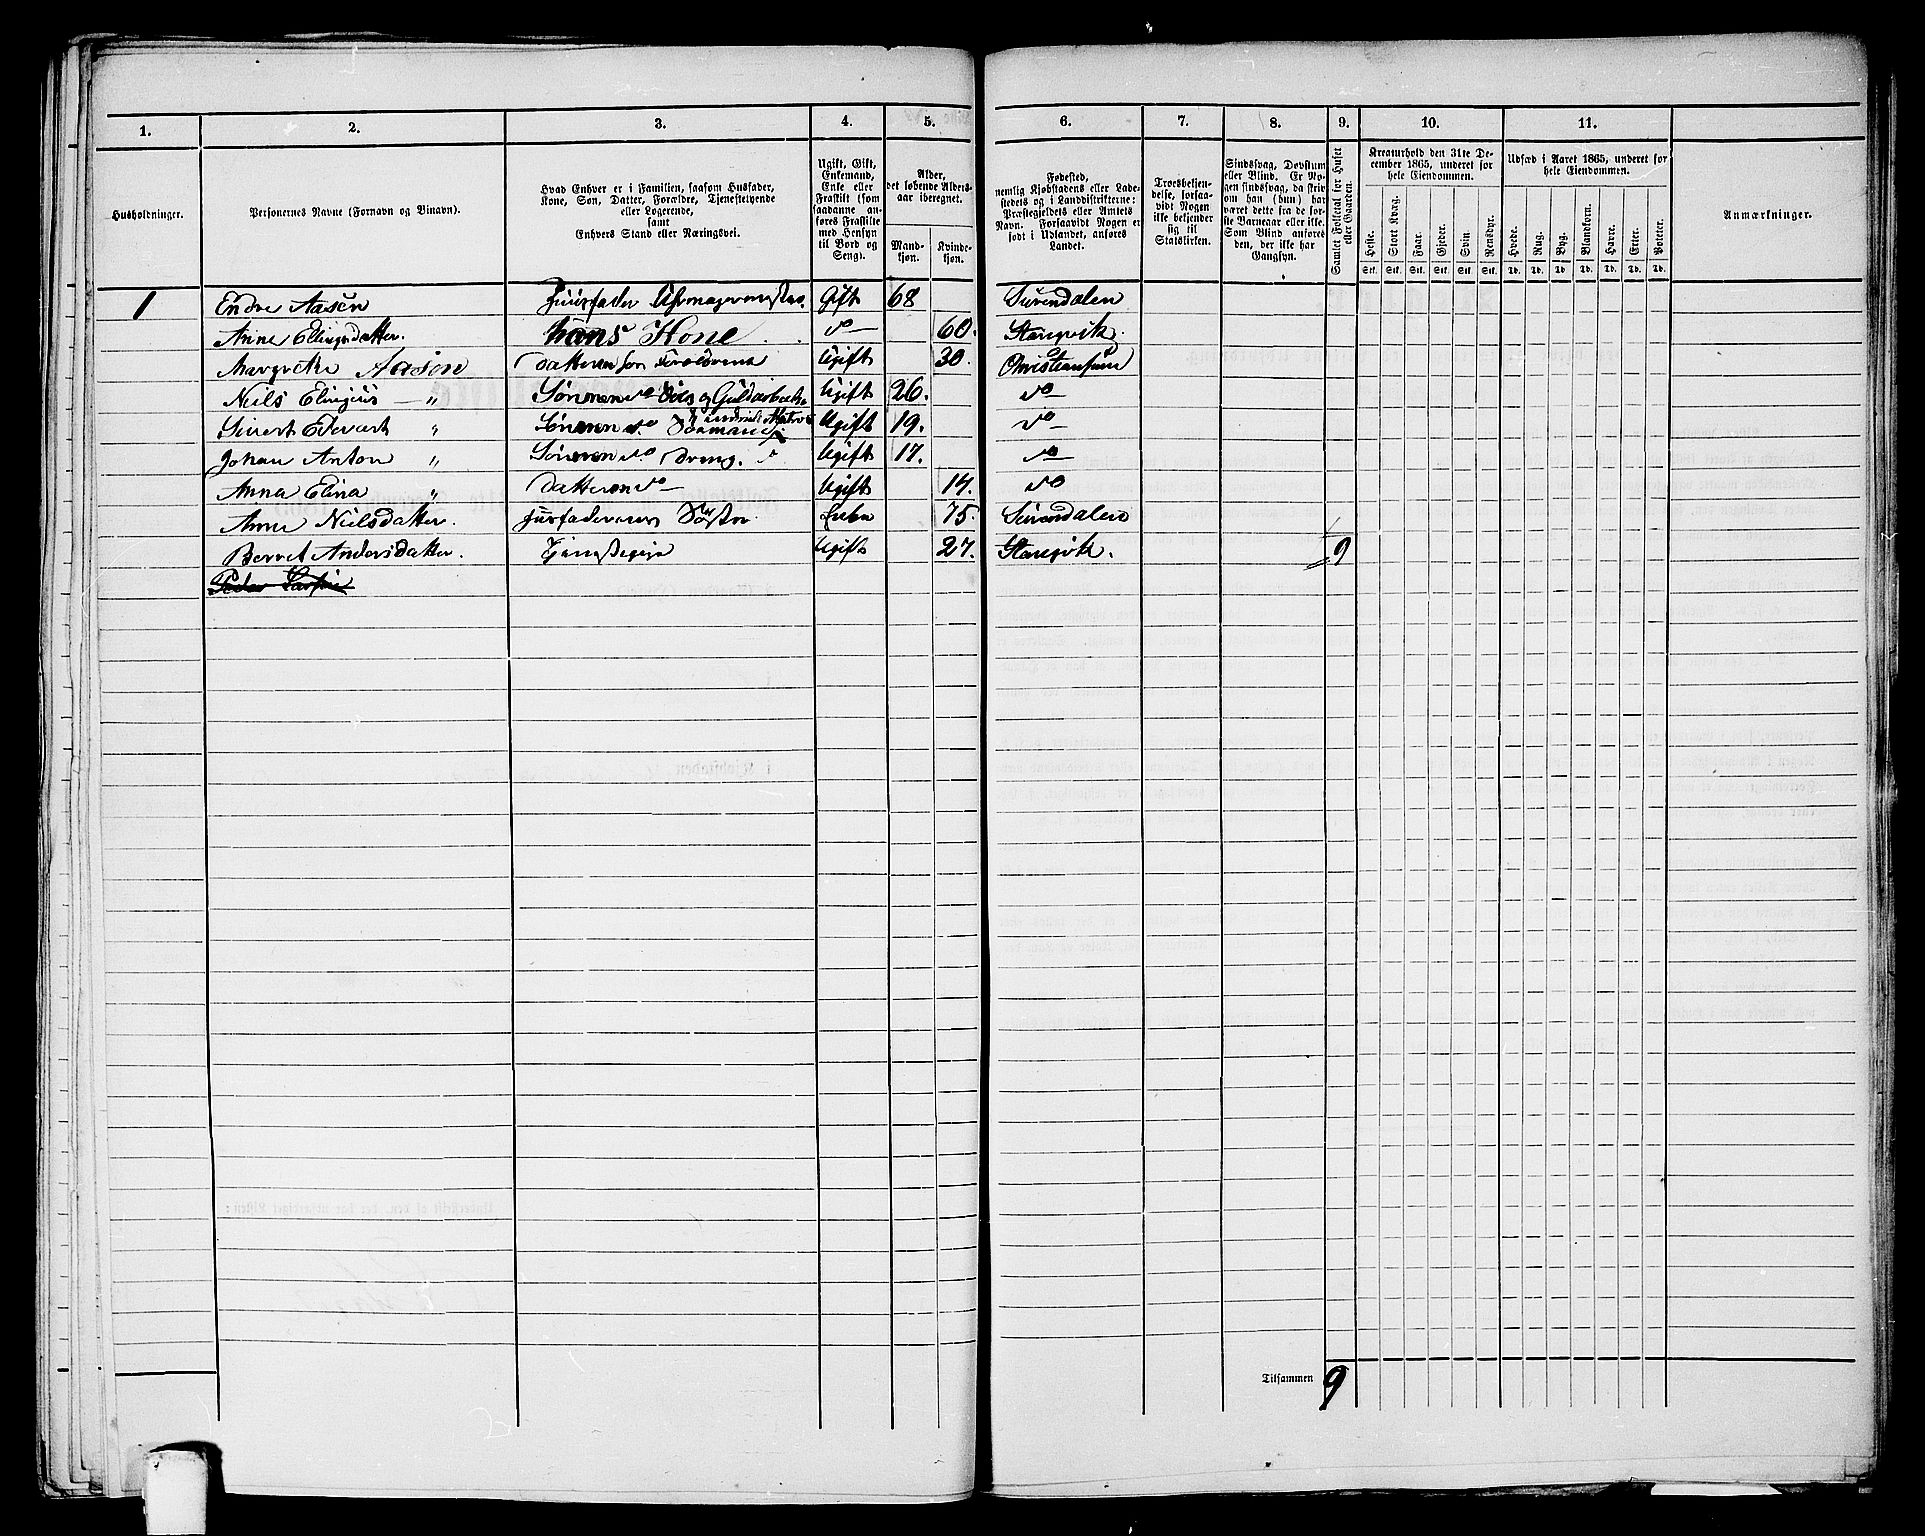 1. 2. 3. 4. 5. 6. 7. 8. 9. 10. 11.
Husholdninger.
Personernes Navne (Fornavn og Binavn).
Hvad Enhver er i Familien, saasom Husfader,
Kone, Søn, Datter, Forældre, Tjenestetyende
eller Logerende,
samt
Enhvers Stand eller Næringsvei.
Ugift, Gift,
Enkemand,
Enke eller
Fraskilt (som
saadanne an-
føres Fraskilte
med Hensyn
til Bord og
Seng).
Alder,
det løbende Alders-
aar iberegnet.
Mand-
kjøn.
Kvinde-
kjøn.
Fødested,
nemlig Kjøbstadens eller Lade-
stedets og i Landdistrikterne:
Præstegjeldets eller Amtets
Navn. Forsaavidt Nogen er
født i Udlandet, anføres
Landet.
Troesbekjen-
delse, forsaa-
vidt Nogen
ikke bekjender
sig til
Statskirken.
Sindssvag, Døvstum
eller Blind. Er No-
gen sindssvag, da skriv
om han (hun) har
været dette fra de før-
ste Barneaar eller ikke.
Som Blind anføres
den, der ikke har
Gangsyn.
Samlet Folketal for Huset
eller Gaarden.
Kreaturhold den 31te De-
cember 1865, underet for
hele Eiendommen.
Heste. Stort Kvæg. Faar. Gjeder. Svin. Rensdyr.
Stk. Stk. Stk. Stk. Stk. Stk.
Udsæd i Aaret 1865, underet for
hele Eiendommen.
Hvede. Rug. Byg. Blandkorn. Havre. Erter. Poteter.
Td. Td. Td. Td. Td. Td. Td.
Anmærkninger.
1 Endre Aasen Huusfader Gift 68 Surendalen
Anne Ellingsdatter. hans Kone do 60. Stangvik.
Margrethe Aasen datteren Ugift 30. Christiansund
Niels Elingius " Sønnen do og Guldarbeider Ugift 26. do
Sivert Edevart " Sønnen do Sømand Ugift 19. do
Johan Anton " Sønnen do dreng. Ugift 17. do
Anna Elina " datteren do Ugift 14. do
Anne Nielsdatter. Huusfaderens Søster Enke 75. Surendalen
Berret Andersdatter. Tjenestepige Ugift 27. Stangvik. 9
Tilsammen 9